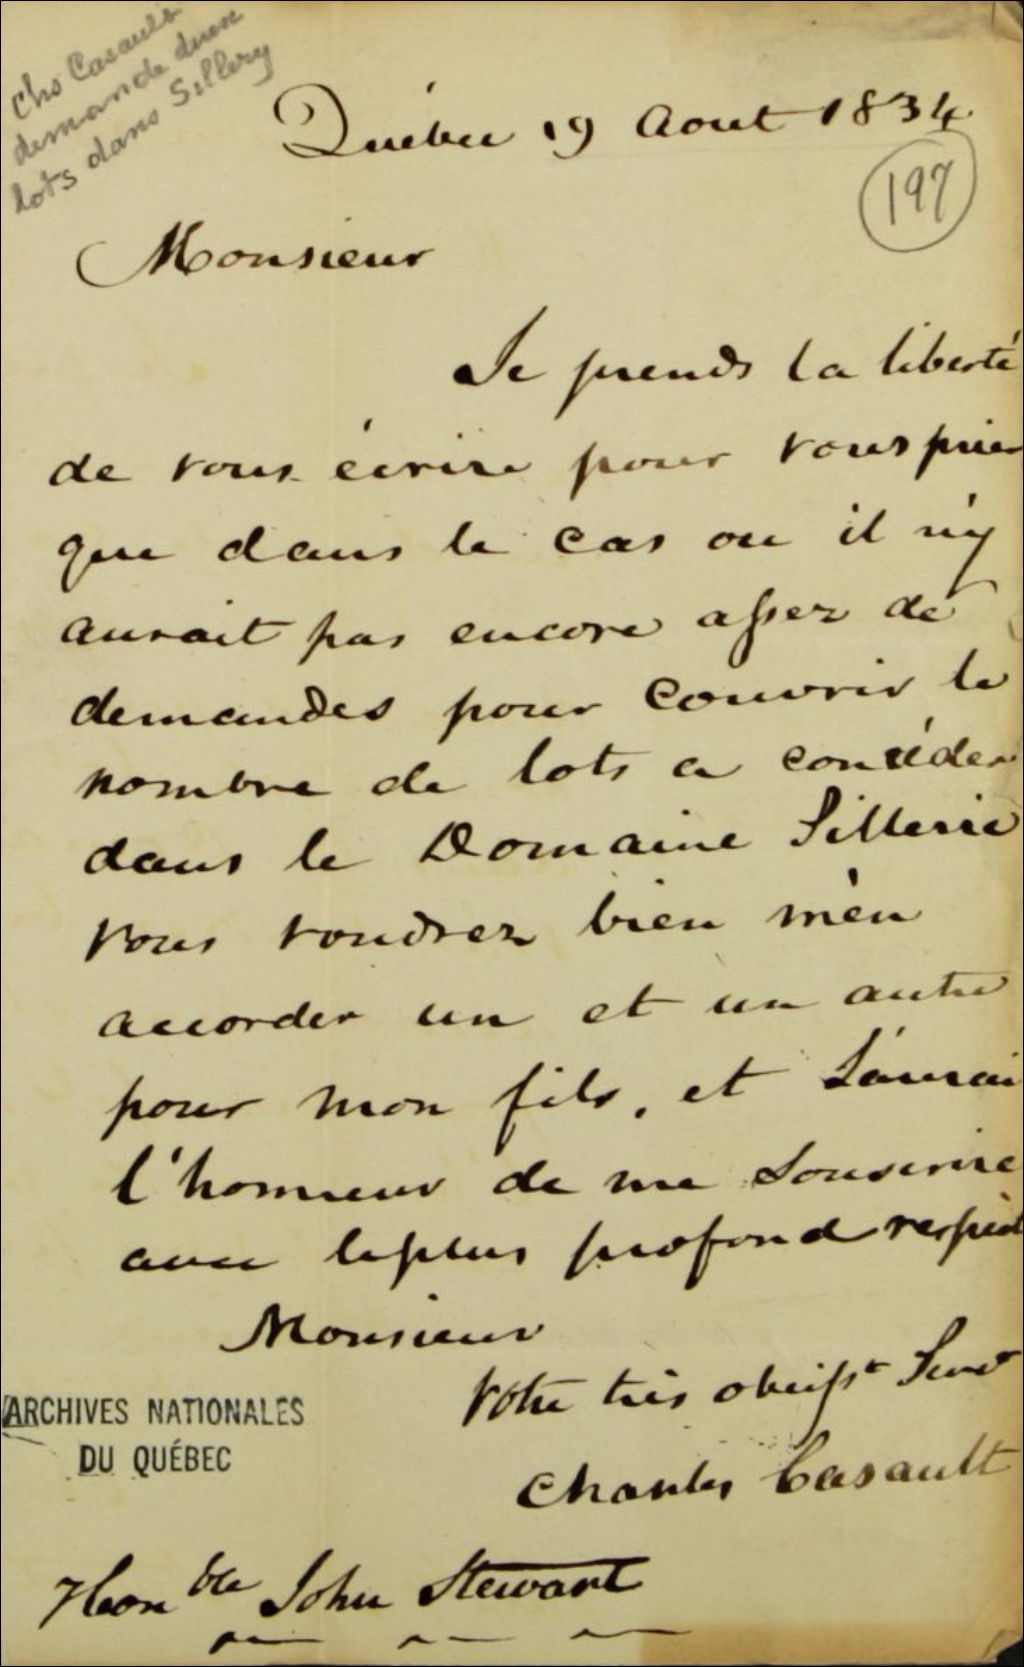 Chs Casault
demande deux
lots dans Sillery
Québec 19 Aout 1834
197
Monsieur
Je prends la liberté
de vous écrire pour vous prier
que dans le cas ou il n'y
aurait pas encore assez de
demandes pour couvrir le
nombre de lots a concéder
dans le Domaine Sillerie
vous voudrez bien m'en
accorder un et un autre
pour mon fils, et J'aurai
l'honneur de me Souscrire
avec le plus profond respect
Monsieur
Votre très obeisst Servt
Charles Casault
ARCHIVES NATIONALES
DU QUÉBEC
Honble John Stewart